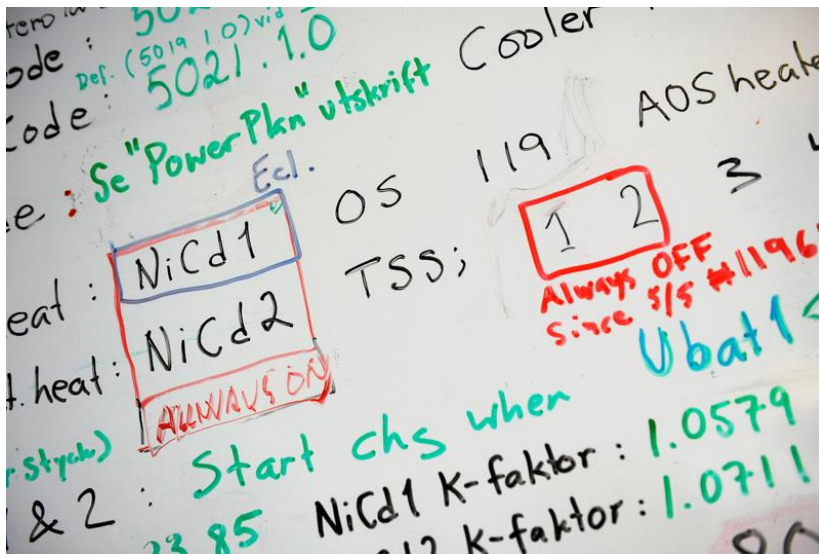 ode : 50
Def. (5019.1.0) vid
Code : 5021.1.0
Cooler
e : Se "PowerPlan" utskrift
Ecl.
OS 119 AOS heate
eat : NiCd1 TSS; 1 2 3
Always OFF
Since 5/5 #1196
t. heat : NiCd2
ALLWAYS ON
Ubat1 <
r styck)
& 2 : Start chs when
23.85 NiCd1 K-faktor : 1.0579
K-faktor : 1.0711